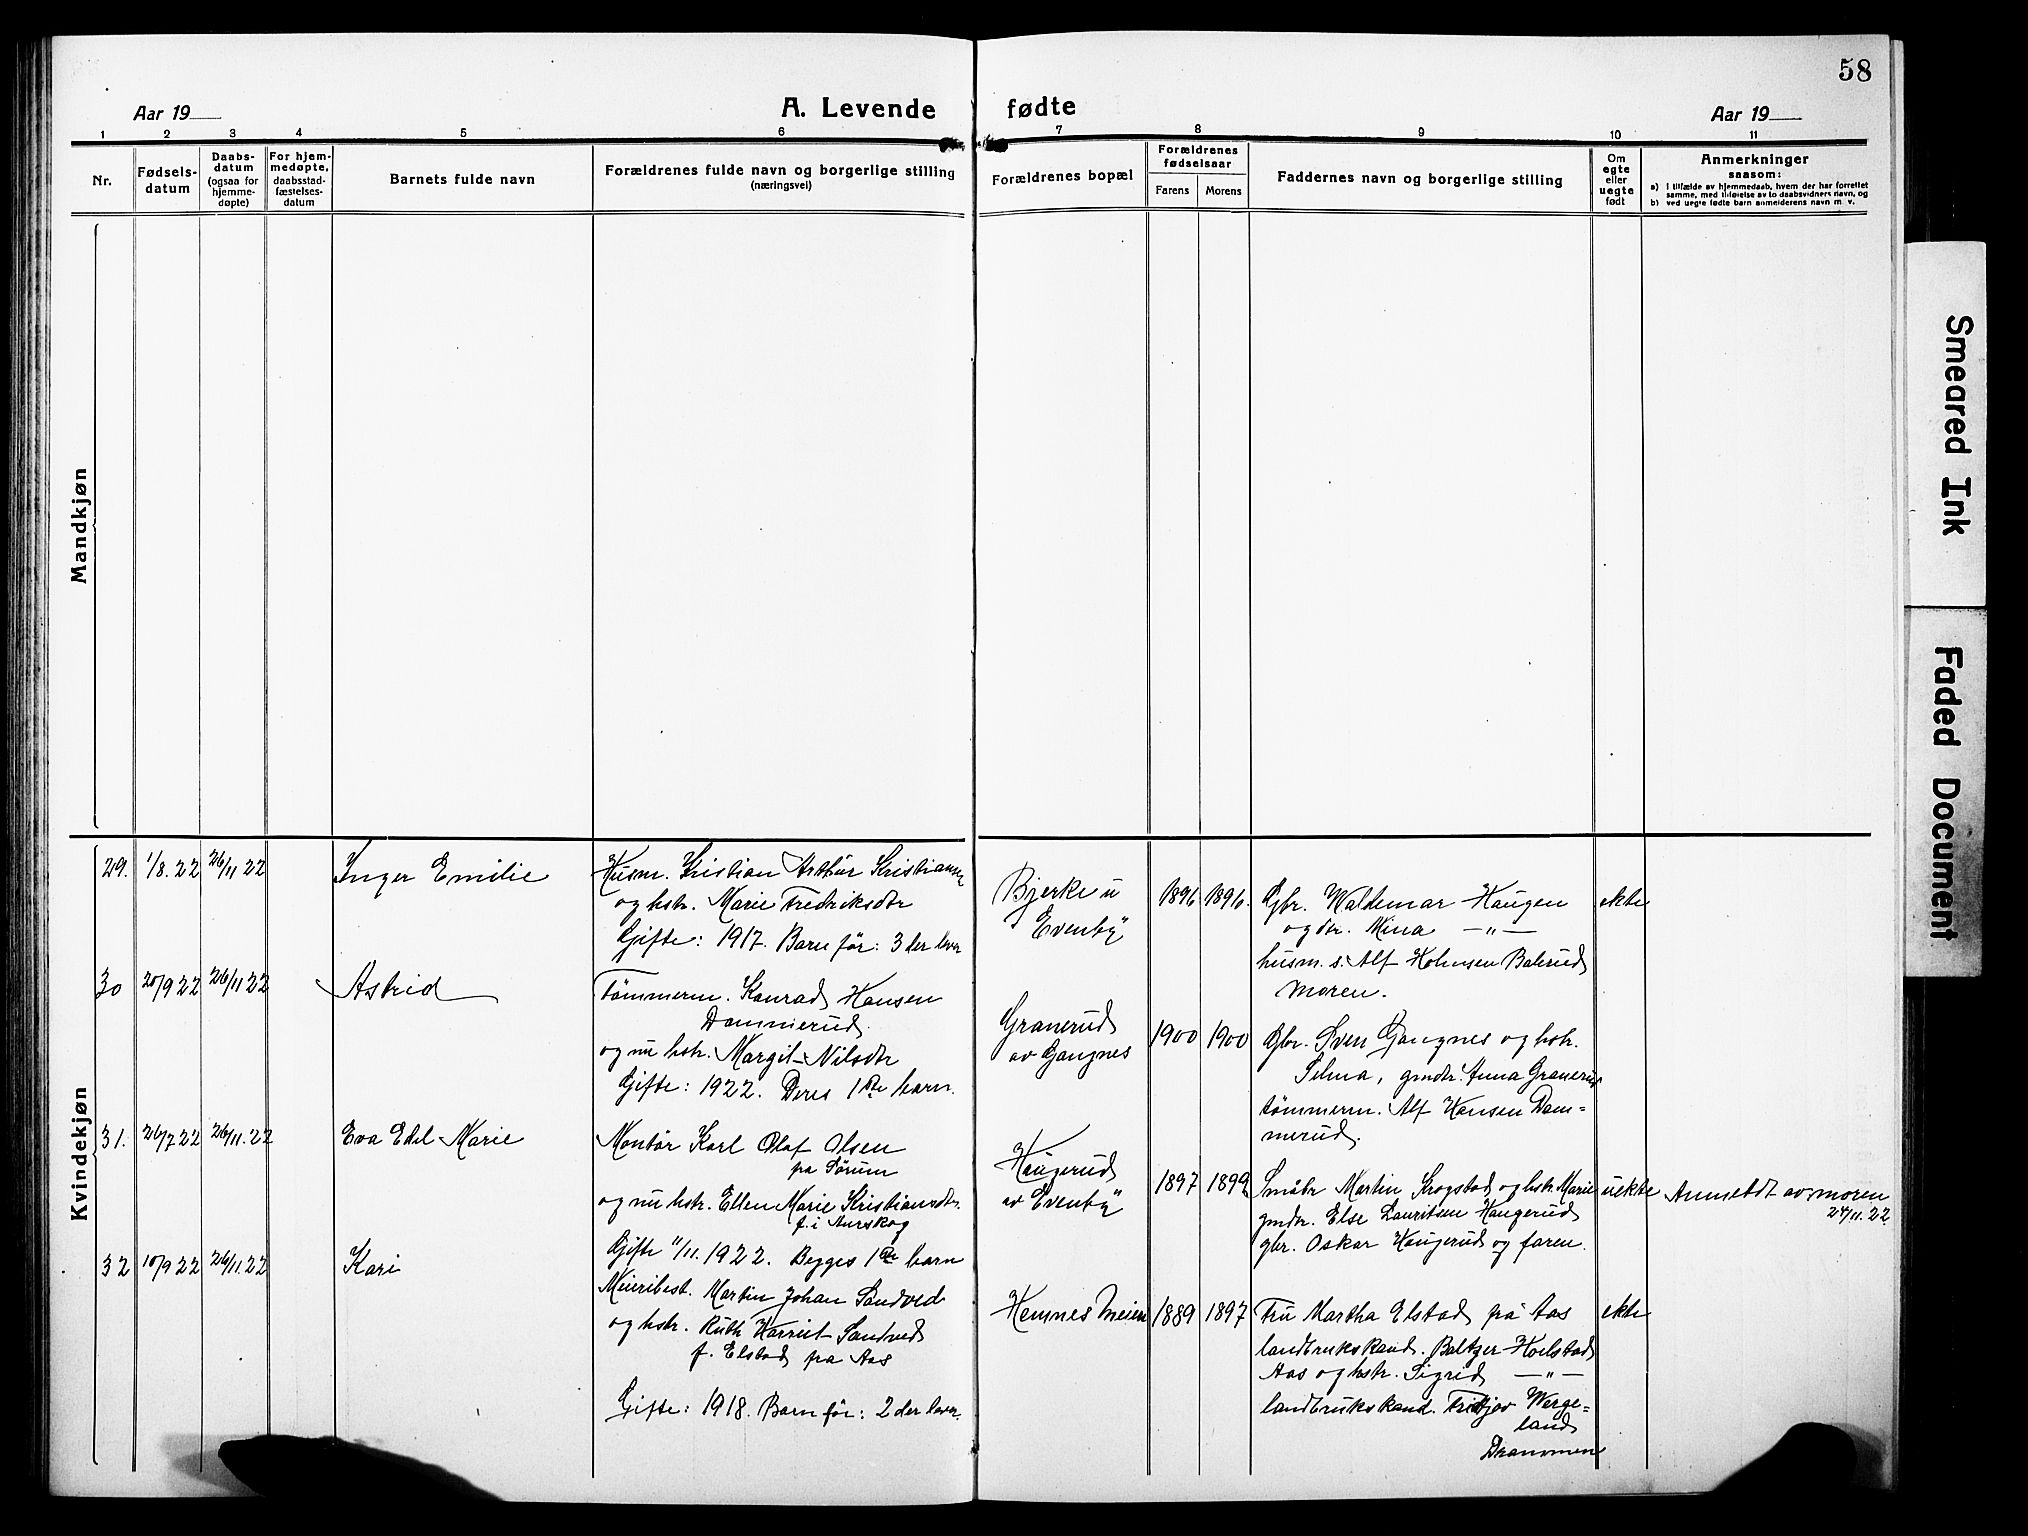 58
Aar 19
A. Levende fødte
Aar 19
1 2 3 4 5 6 7 8 9 10 11
Nr.
Fødsels-
datum
Daabs-
datum
(ogsaa for
hjemme-
døpte)
For hjem-
medøpte,
daabsstad-
fæstelses-
datum
Barnets fulde navn
Forældrenes fulde navn og borgerlige stilling
(næringsvei)
Forældrenes bopæl
Forældrenes
fødselsaar
Farens Morens
Faddernes navn og borgerlige stilling
Om
egte
eller
uegte
født
Anmerkninger
saasom:
a) I tilfælde av hjemmedaab, hvem der har forrettet
samme, med tilføielse av to daabsvidners navn, og
b) ved uegte fødte barn anmelderens navn m. v.
Mandkjøn
Kvindekjøn
29. 1/8.22 26/11 22 Inger Emilie
Husm. Kristian Arthur Kristiansen
og hstr. Marie Fredriksdtr
Gifte: 1917. Barn før: 3 der lever
Bjerke u
Evenby
1896 1896.
Gbr. Waldemar Haugen
og dr. Mina —„—
husm. s. Alf Holmsen Balerud
Moren.
ekte
30 20/9 22 26/11 22 Astrid
Tømmerm. Konrad Hansen
Dammerud
og nu hstr. Margit Nilsdtr
Gifte: 1922. Deres 1ste barn.
Granerud
av Gangnes
1900 1900
Gbr. Sven Gangnes og hstr.
Selma, gmdtr. Anna Granerud
tømmerm. Alf Hansen Dam=
merud.
31. 26/7 22 26/11.22 Eva Edel Marie
Montør Karl Olaf Olsen
pa Sørum
og nu hstr. Ellen Marie Kristiansdtr.
f. i Aurskog
Gifte 11/11.1922. Begges 1ste barn
Haugerud
av Evenby
1897 1899
Småbr Martin Krogstad og hstr. Marie
gmdtr. Else Lauritsen Haugerud
gbr. Oskar Haugerud og faren.
uekte
Anmeldt av moren
24/11.22
32 10/9 22 26/11.22 Kari
Meieribest. Martin Johan Sandved
og hstr. Ruth Harriet Sandved
f. Elstad pa Aas
Gifte: 1918. Barn før: 2 der lever.
Hemnes Meieri
1889 1897
Fru Martha Elstad på Aas
landbrukskand. Baltzer Hoelstad
Aas og hstr. Sigrid —„—
landbrukskand. Fridtjov Werge=
land
Drammen
ekte
Smeared Ink
Faded Document